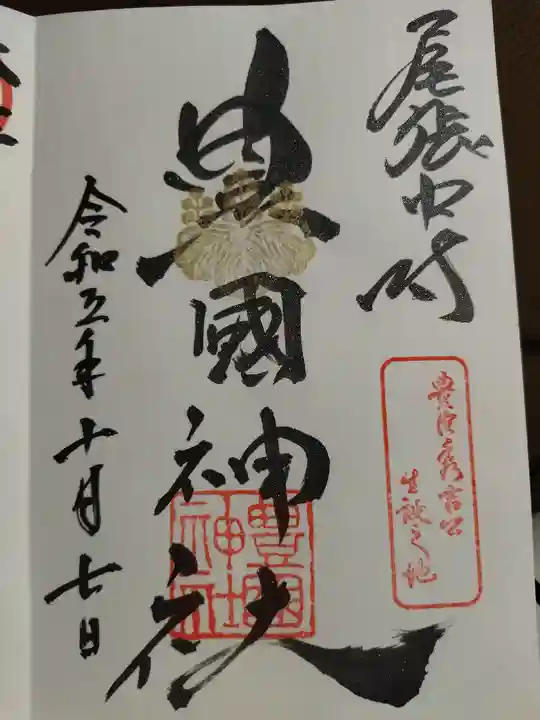 尾張中村
豊臣秀吉公
生誕之地
豊國神社
豊國
神社
令和五年十月七日